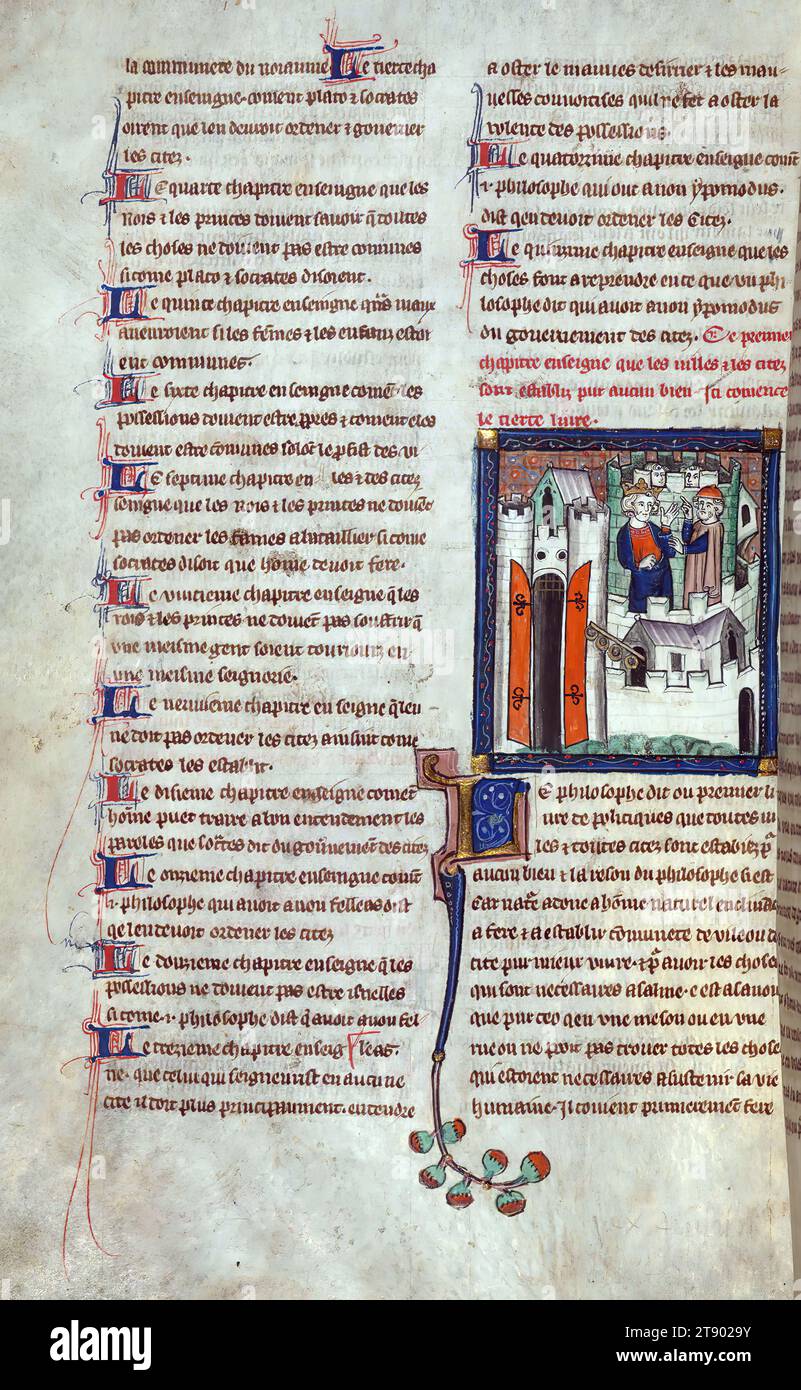 la communete du roiaume Le tiers cha
pitre enseingne. coment plato & socrates
distrent que len devoit ordener & gouverner
les citez.
Le quarte chapitre enseingne que les
rois & les princes doivent savoir q̃ toutes
les choses ne doivent pas estre communes
si come plato & socrates disoient.
Le quinte chapitre enseingne maux
avenroient si les fẽmes & les enfanz estoi
ent communes.
Le sixte chapitre enseingne comẽt les
possessions doivent estre ꝓpres & coment eles
doivent estre cõmunes selonc le ꝓfist des vi
Le septime chapitre en les & des citez
seingne que les rois & les princes ne doivẽt
pas ordener les fames a bataillier si come
socrates disoit que hõme devoit fere.
Le vintieme chapitre enseingne q̃ les
rois & les princes ne doivẽt pas soustrir q̃
une meisme gent soient tourjourz en
une meisme seignorie.
Le nevuieme chapitre enseigne q̃ leu
ne doit pas ordener les citez ainsint come
socrates les establit.
Le disieme chapitre enseigne comẽt
hõme puet traire a bon entendement les
paroles que socrates dit du gouvernemẽt des citez
Le onzieme chapitre enseingne comẽt
.i. philosophe qui avoit a non felleas dist
qe len devoit ordener les citez
Le douzieme chapitre enseingne q̃ les
possessions ne doivent pas estre iuelles
si come .i. philosophe dist q̃ avoit a non fel
Le trezieme chapitre enseig leas.
ne. que celui qui seigneurist en aucune
cite il doit plus principaument. entendre
a oster le mauves desirrer & les mau
veses convoitises quil ne fet a oster la
volente des possessions.
Le quatorzime chapitre enseingne comẽt
.i. philosophe qui out a non ypomodus.
dist qen devoit ordener les citez.
Le quinzime chapitre enseingne que les
choses sont a reprendre en ce que un phi
losophe dit qui avoit a non ypomodus
du gouvernement des citez. Le premier
chapitre enseigne que les villes & les citez
sont establiz pur aucun bien. ici comence
le tierte livre.
Le philosophe dit ou premier li
vre de politiques que toutes vi
les & toutes citez sont establiez p̃
aucun bien & la reson du philosophe si est
Car natr̃e a done a hõme naturel enclinãce
a fere & a establir cõmunete de vile ou de
cite pur mieur vivre. & p̃ avoir les choses
qui sont necessaires a sa vie. cest a savoir
que pur ceo qen une meson ou en une
rue on ne poit pas trover totes les chose
qui estoient necessaires a sustenir sa vie
humaine. Il covient primierement fere
alamy
Image ID: 2T9029Y
www.alamy.com